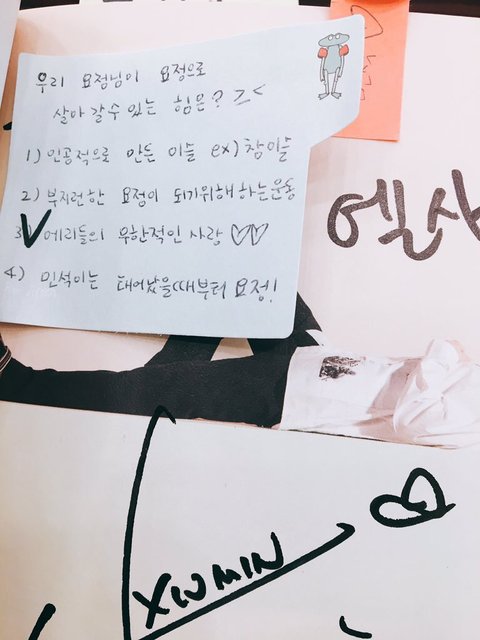 우리 요정님이 요정으로
살아 갈 수 있는 힘은? ><
1) 인공적으로 만든 이슬 ex) 참이슬
2) 부지런한 요정이 되기위해 하는 운동
3) 에리들의 무한적인 사랑 ♡♡
4) 민석이는 태어났을때부터 요정!
엘사
XIUMIN